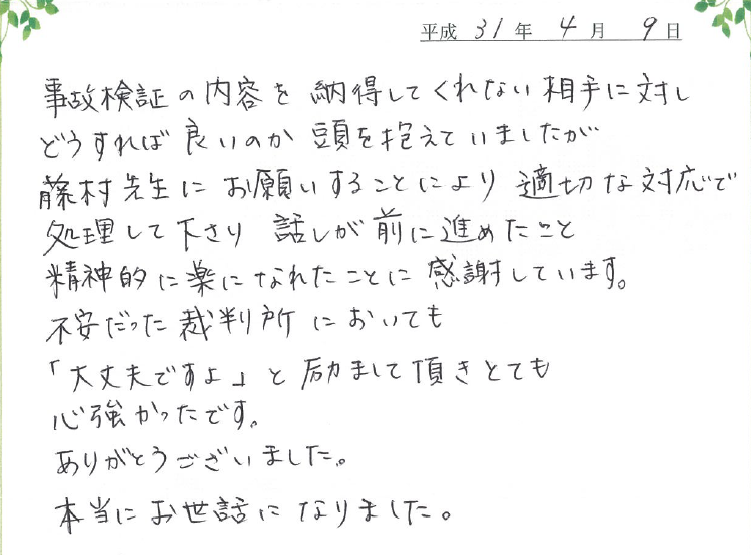 平成 31 年 4 月 9 日
事故検証の内容を 納得してくれない相手に対し
どうすれば良いのか 頭を抱えていましたが
藤村先生に お願いすることにより 適切な対応で
処理して下さり 話しが前に進めたこと
精神的に楽になれたことに 感謝しています。
不安だった裁判所においても
「大丈夫ですよ」と励まして頂きとても
心強かったです。
ありがとうございました。
本当にお世話になりました。